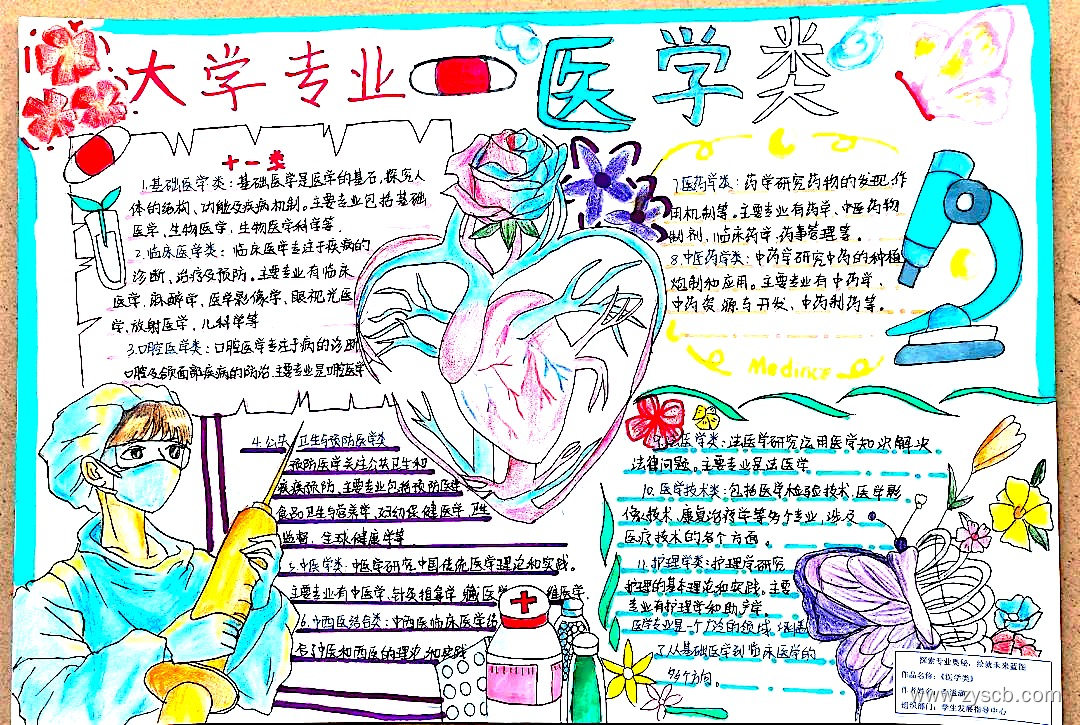 大学专业
医学类
十一类
1.基础医学类:基础医学是医学的基石,探究人
体的结构、功能及疾病机制。主要专业包括基础
医学、生物医学、生物医学科学等.
2.临床医学类:临床医学专注于疾病的
诊断、治疗及预防。主要专业有临床
医学、麻醉学、医学影像学、眼视光医
学、放射医学、儿科学等
3.口腔医学类:口腔医学专注于病的诊断
口腔及颌面部疾病的防治.主要专业是口腔医学
4.公共卫生与预防医学类
预防医学关注公共卫生和
疾病预防.主要专业包括预防医学
食品卫生与营养学、妇幼保健医学、卫生
监督、全球健康学等
5.中医学类:中医学研究中国传统医学理论和实践。
主要专业有中医学、针灸推拿学、藏医学
6.中西医结合类:中西医临床医学结
中医和西医的理论和实践
7.医药学类:药学研究药物的发现、作
用机制等。主要专业有药学、中医药物
制剂、临床药学、药事管理等。
8.中医药学类:中药学研究中药的种植
炮制和应用。主要专业有中药学、
中药资源与开发、中药制药等。
Medince
医学类:法医学研究应用医学知识解决
法律问题。主要专业是法医学
10.医学技术类:包括医学检验技术、医学影
像技术、康复治疗学等多个专业,涉及
医疗技术的各个方面。
11.护理学类:护理学研究
护理的基本理论和实践。主要
专业有护理学和助产学
医学专业是一个广泛的领域,涵盖
了从基础医学到临床医学的
多个方向。
探索专业奥秘,绘就未来蓝图
作品名称:《医学类》
组织部门:学生发展指导中心
www.zyscb.com